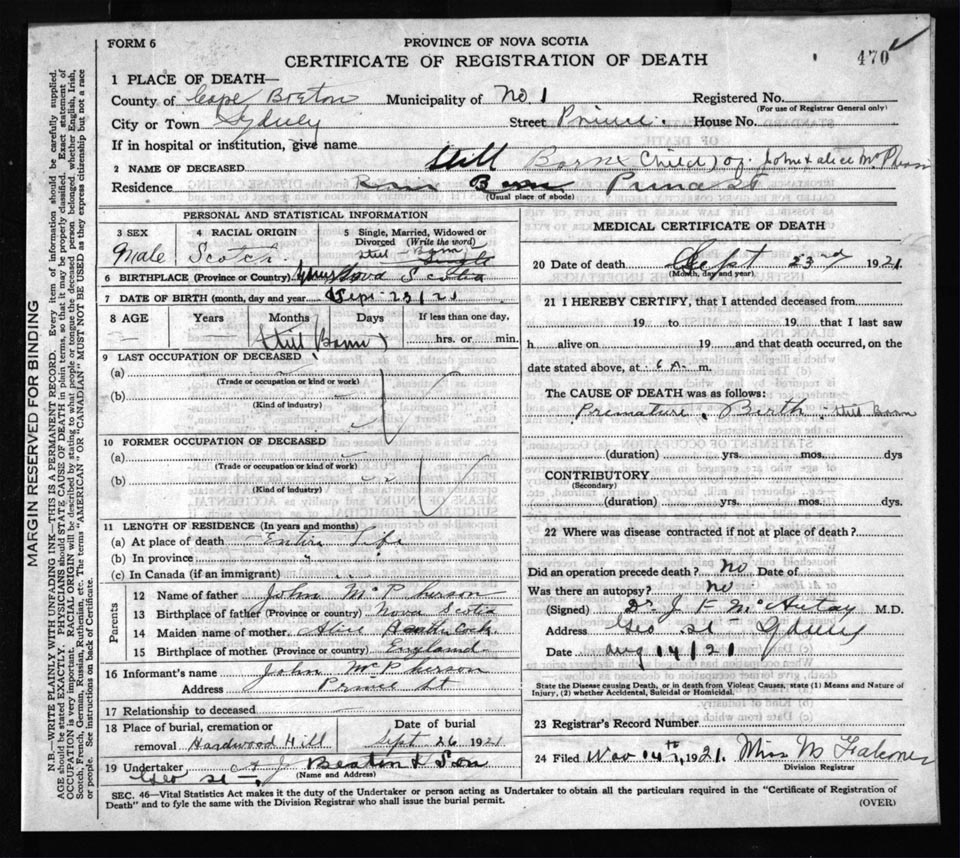 FORM 6
PROVINCE OF NOVA SCOTIA
CERTIFICATE OF REGISTRATION OF DEATH
470
1 PLACE OF DEATH—
County of Cape Breton Municipality of No. 1 Registered No.
(For use of Registrar General only)
City or Town Sydney Street Prince. House No.
If in hospital or institution, give name
2 NAME OF DECEASED Still Born (Child) of John & Alice McPherson
Residence Prince St
(Usual place of abode)
PERSONAL AND STATISTICAL INFORMATION
3 SEX Male
4 RACIAL ORIGIN Scotch.
5 Single, Married, Widowed or Divorced (Write the word) Still-Born Single
6 BIRTHPLACE (Province or Country) Nova Scotia
7 DATE OF BIRTH (month, day and year) Sept 23/21
8 AGE Years Months Days If less than one day,
Still Born hrs. or min.
9 LAST OCCUPATION OF DECEASED
(a)
(Trade or occupation or kind or work)
(b)
(Kind of industry)
10 FORMER OCCUPATION OF DECEASED
(a)
(Trade or occupation or kind of work)
(b)
(Kind of industry)
11 LENGTH OF RESIDENCE (In years and months)
(a) At place of death Entire Life
(b) In province "
(c) In Canada (if an immigrant)
Parents
12 Name of father John McPherson
13 Birthplace of father (Province or country) Nova Scotia
14 Maiden name of mother Alice
15 Birthplace of mother (Province or country) England
16 Informant's name John McPherson
Address Prince St
17 Relationship to deceased
18 Place of burial, cremation or removal Hardwood Hill
Date of burial Sept 26 1921
19 Undertaker A J Beaton & Son
Geo St (Name and Address)
MEDICAL CERTIFICATE OF DEATH
20 Date of death Sept 23rd 1921
(Month, day and year)
21 I HEREBY CERTIFY, that I attended deceased from
19 to 19 that I last saw
h alive on 19 and that death occurred, on the
date stated above, at 6 A. m.
The CAUSE OF DEATH was as follows:
Premature Birth, Still Born
(duration) yrs. mos. dys
CONTRIBUTORY
(Secondary)
(duration) yrs. mos. dys.
22 Where was disease contracted if not at place of death?
Did an operation precede death? No Date of
Was there an autopsy? No
(Signed) Dr. J F McAutay M.D.
Address Geo St Sydney
Date Aug 14/21
State the Disease causing Death, or Death from Violent Causes, state (1) Means and Nature of
Injury, (2) whether Accidental, Suicidal or Homicidal.
23 Registrar's Record Number
24 Filed Nov 14th, 1921. Miss M Falconer
Division Registrar
SEC. 46—Vital Statistics Act makes it the duty of the Undertaker or person acting as Undertaker to obtain all the particulars required in the "Certificate of Registration of
Death" and to fyle the same with the Division Registrar who shall issue the burial permit.
(OVER)
MARGIN RESERVED FOR BINDING
N.B.—WRITE PLAINLY WITH UNFADING INK—THIS IS A PERMANENT RECORD. Every item of information should be carefully supplied.
AGE should be stated EXACTLY. PHYSICIANS should STATE CAUSE OF DEATH in plain terms, so that it may be properly classified. Exact statement of
OCCUPATION is very important. RACIAL ORIGIN will be described by stating to what people or tongue the deceased person belongs, whether English, Irish,
Scotch, French, German, Russian, Ruthenian, etc. The terms "AMERICAN" or "CANADIAN" MUST NOT BE USED as they express citizenship but not a race
or people. See instructions on back of Certificate.